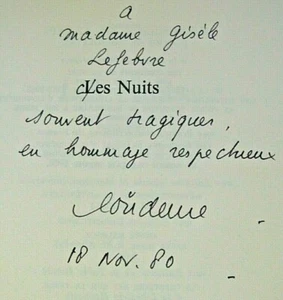 A
madame Gisèle
Lefebvre
Les Nuits
souvent tragiques,
en hommage respectueux
Loüdeme
18 Nov. 80